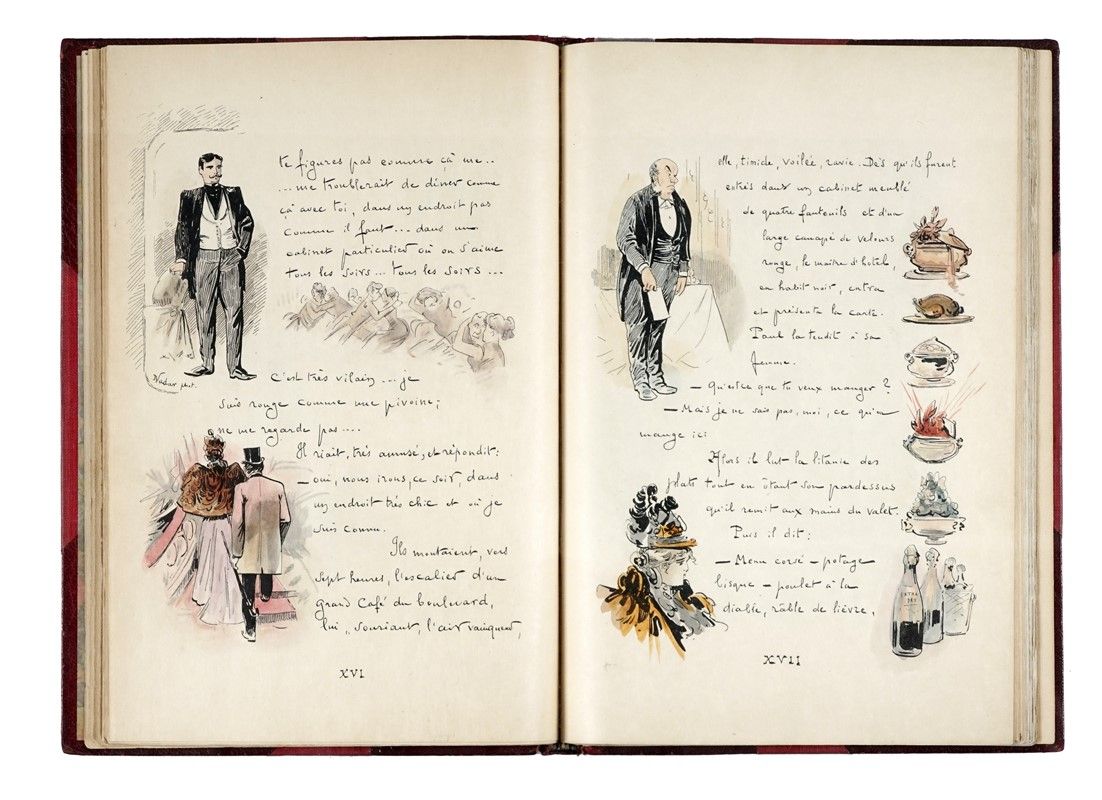 te figures pas comme çà me..
... me troublerait de diner comme
çà avec toi, dans un endroit pas
comme il faut... dans un
cabinet particulier où on s'aime
tous les soirs... tous les soirs...
Nadar phot.
C'est très vilain... je
suis rouge comme une pivoine;
ne me regarde pas....
Il riait, très amusé, et répondit:
— oui, nous irons, ce soir, dans
un endroit très chic et où je
suis connu.
Ils montaient, vers
sept heures, l'escalier d'un
grand Café du boulevard,
lui, souriant, l'air vainqueur,
XVI
elle, timide, voilée, ravie. Dès qu'ils furent
entrés dans un cabinet meublé
de quatre fauteuils et d'un
large canapé de velours
rouge, le maître d'hôtel,
en habit noir, entra
et présenta la carte.
Paul la tendit à sa
femme.
— Qu'est ce que tu veux manger ?
— Mais je ne sais pas, moi, ce qu'on
mange ici
Alors il lut la litanie des
plats tout en ôtant son pardessus
qu'il remit aux mains du valet.
Puis il dit:
— Menu corsé — potage
bisque — poulet à la
diable, râble de lièvre,
EXTRA
DRY
XVII